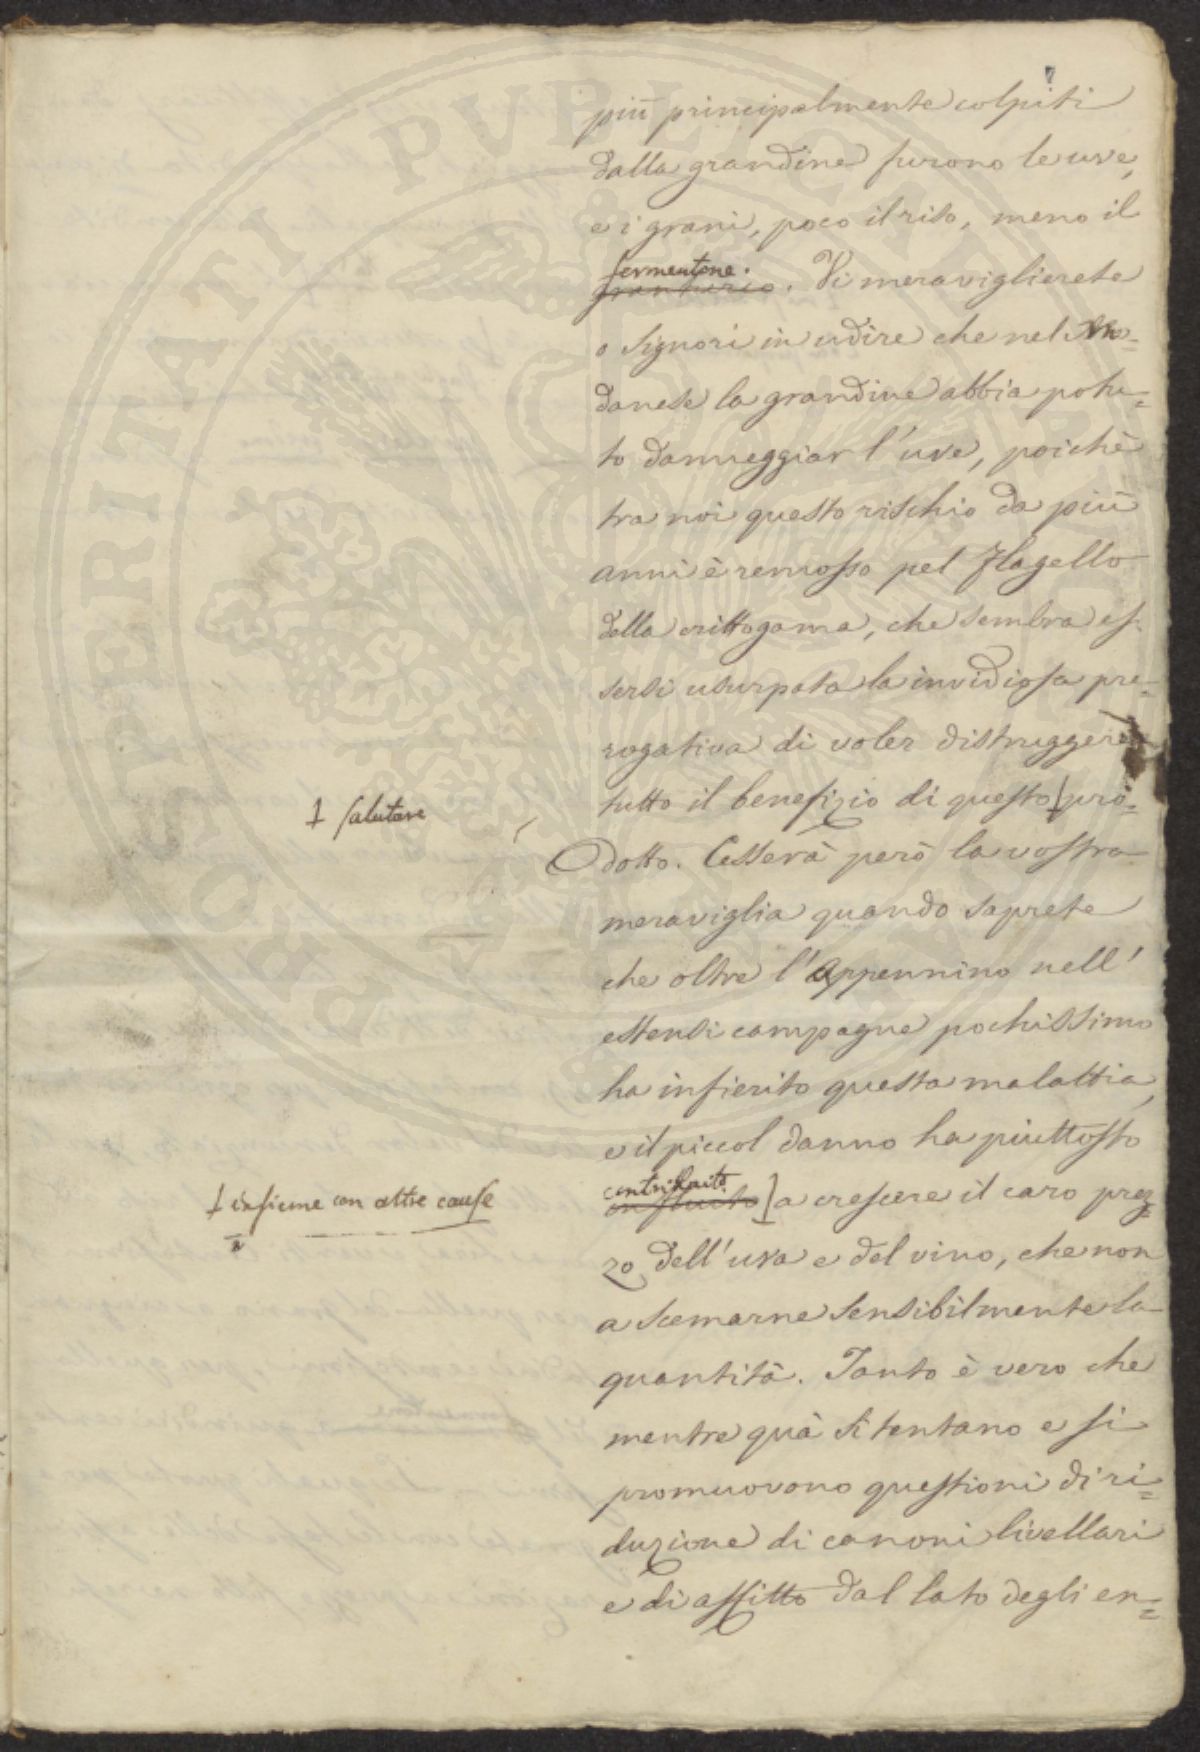 PROSPERITATI PUBLICAE AUGENDAE
7
più principalmente colpiti
dalla grandine furono le uve,
e i grani, poco il riso, meno il
fermentone.
granturco. Vi meraviglierete
o Signori in udire che nel Mo=
danese la grandine abbia potu=
to danneggiar l'uve, poichè
tra noi questo rischio da più
anni è remosso pel Flagello
della crittogama, che sembra es=
sersi usurpata la invidiosa pre=
rogativa di voler distruggere
tutto il benefizio di questo pro=
‡ salutare
dotto. Cesserà però la vostra
meraviglia quando saprete
che oltre l'Appennino nell'
estensi campagne pochissimo
ha infierito questa malattia,
e il piccol danno ha piuttosto
contribuito
influito a crescere il caro prez=
‡ insieme con altre cause
zo dell'uva e del vino, che non
a scemarne sensibilmente la
quantità. Tanto è vero che
mentre quà si tentano e si
promuovono questioni di ri=
duzione di canoni livellari
e di affitto dal lato degli en=